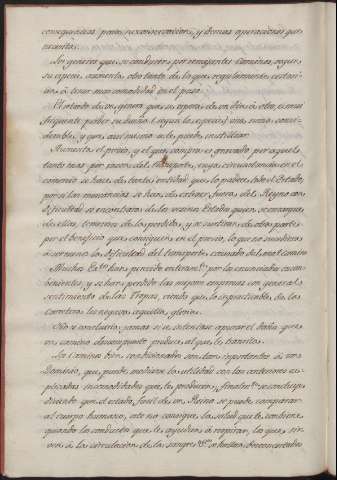 conseguirlas para su conservacion, y demas operaciones que
necesita.
Los generos que se conducen por semejantes Caminos, segun
su especie, aumenta otro tanto de lo que regularmente costarian
à tener mas comodidad en el paso.
El atraso de un genero que se espera de un dia à otro, es mui
frequente perder su dueño (segun la especie) una suma consi-
derable, y que aun mismo se le puede inutilizar.
Aumenta el precio, y el que compra es gravado por aquel
tanto mas por razon del transporte, cuya circunstancia en el
comercio se hace de tanta entidad que lo padece todo el Estado,
por si las mercancias se han de extraer fuera del Reyno con
dificultad se encontrara de los vecinos Estados quien se encargue
de ellas, temeroso de las perdidas, y se surtiran de otras partes
por el beneficio que consiguen en el precio, lo que no sucediera
à no mediar la dificultad del transporte causado del mal camino.
Muchos Ex.tos han perecido enteram.te por los enunciados incon-
benientes, y se han perdido las mejores empresas con general
sentimiento de las Tropas, viendo que lo impracticable de las
Carreteras les negaba aquella gloria.
No se concluiria jamas si se intentase apurar el daño que
un camino descompuesto produce al que le transita.
Los Caminos bien condicionados son tan importantes à un
Dominio, que puede medirse la utilidad con las anteriores es-
plicadas incomodidades que le producen, y finalm.te se concluye
diciendo que el estado fisico de un Reino se puede comparar
al cuerpo humano, este no consigue la salud que le combiene
quando los conductos que le ayudan à respirar, los que sir-
ven à la circulacion de la sangre &.a se hallan descomcertados